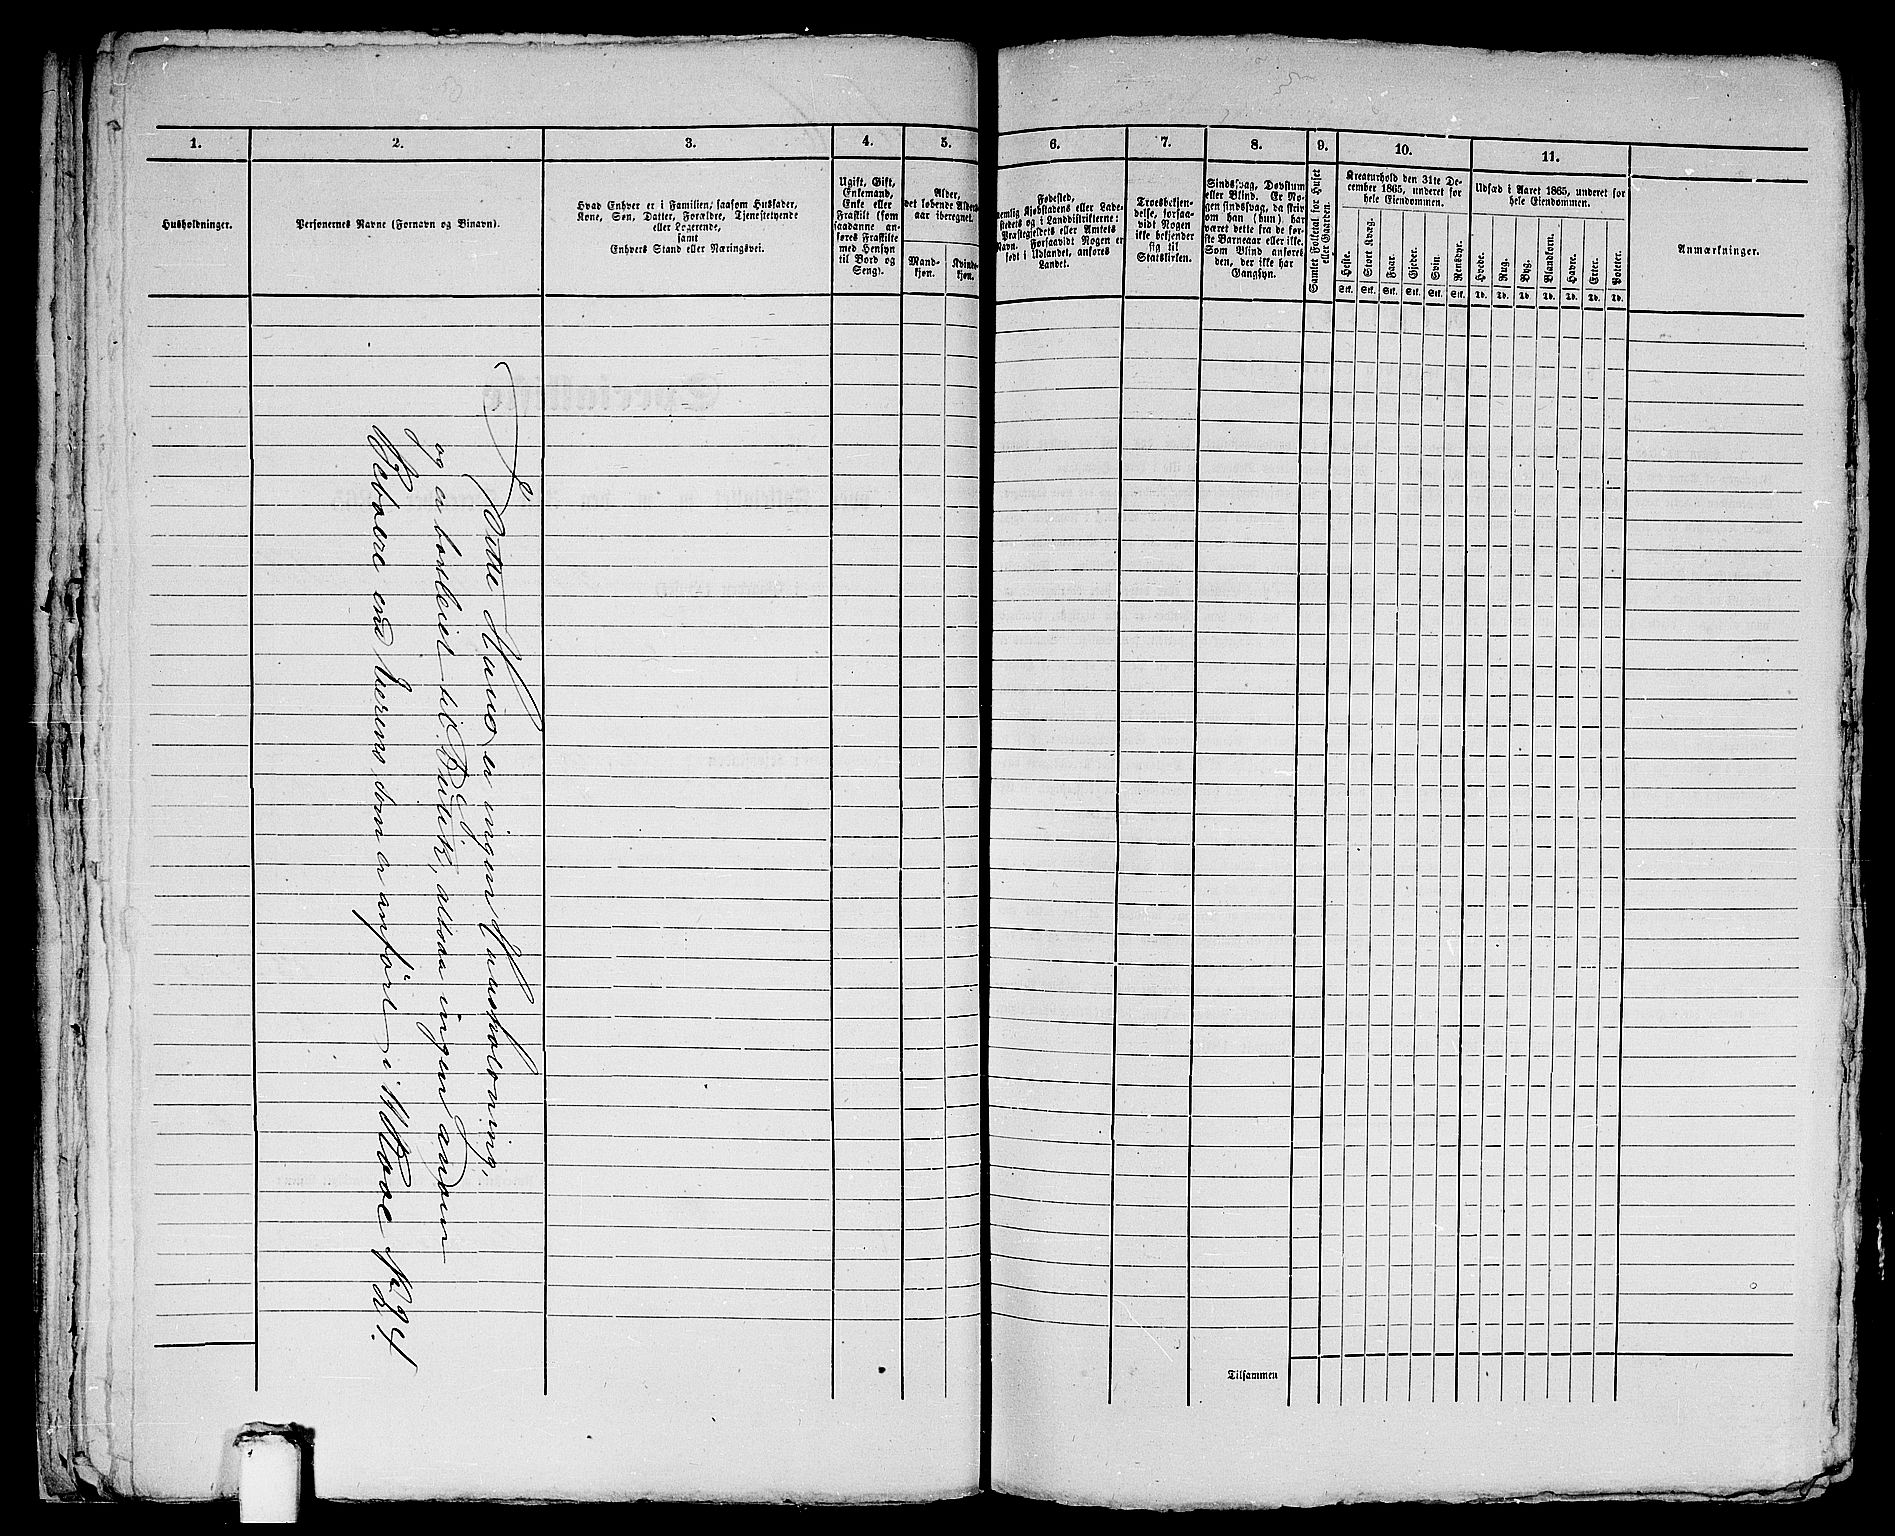 1.
2.
3.
4.
5.
6.
7.
8.
9.
10.
11.
Husholdninger.
Personernes Navne (Fornavn og Binavn).
Hvad Enhver er i Familien, saasom Husfader,
Kone, Søn, Datter, Forældre, Tjenestetyende
eller Logerende,
samt
Enhvers Stand eller Næringsvei.
Ugift, Gift,
Enkemand,
Enke eller
Fraskilt (som
saadanne an-
føres Fraskilte
med Hensyn
til Bord og
Seng).
Alder,
det løbende Alders-
aar iberegnet.
Mand-
kjøn.
Kvinde-
kjøn.
Fødested,
nemlig Kjøbstadens eller Lade-
stedets og i Landdistrikterne:
Præstegjeldets eller Amtets
Navn. Forsaavidt Nogen er
født i Udlandet, anføres
Landet.
Troesbekjen-
delse, forsaa-
vidt Nogen
ikke bekjender
sig til
Statskirken.
Sindssvag, Døvstum
eller Blind. Er No-
gen sindssvag, da skriv
om han (hun) har
været dette fra de før-
ste Barneaar eller ikke.
Som Blind anføres
den, der ikke har
Gangsyn.
Samlet Folketal for Huset
eller Gaarden.
Kreaturhold den 31te De-
cember 1865, underet for
hele Eiendommen.
Heste.
Stort Kvæg.
Faar.
Gjeder.
Svin.
Rensdyr.
Stk. Stk. Stk. Stk. Stk. Stk.
Udsæd i Aaret 1865, underet for
hele Eiendommen.
Hvede.
Rug.
Byg.
Blandkorn.
Havre.
Erter.
Poteter.
Td. Td. Td. Td. Td. Td. Td.
Anmærkninger.
I dette Huus er ingen Huusholdning,
og er bortleiet til Butik, altsaa ingen anden
Beboere end Bereus som er anført i Matroe
Tilsammen